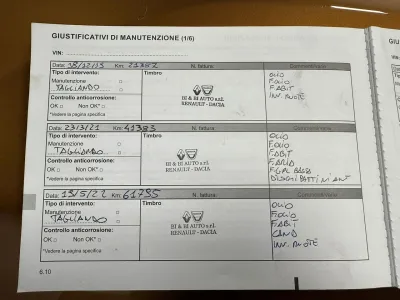 GIUSTIFICATIVI DI MANUTENZIONE (1/6)
VIN:
Data: Km: N. fattura Commenti/Varie
Tipo di intervento: Timbro OLIO
Manutenzione □ FOLIO
TAGLIANDO □ F.ABIT
Controllo anticorrosione: INV. RUOTE
OK □ Non OK* □
*Vedere la pagina specifica
BI & BI AUTO s.r.l.
RENAULT - DACIA
Data: 23/3/21 Km: 41383 N. fattura Commenti/Varie
Tipo di intervento: Timbro OLIO
Manutenzione □ FOLIO
TAGLIANDO □ F.ABIT
Controllo anticorrosione: F.ARIA
OK □ Non OK* □
*Vedere la pagina specifica
BI & BI AUTO s.r.l.
RENAULT - DACIA
Data: 13/5/22 Km: 61795 N. fattura Commenti/Varie
Tipo di intervento: Timbro OLIO
Manutenzione □ FOLIO
TAGLIANDO □ F.ABIT
Controllo anticorrosione: CAND
OK □ Non OK* □ INV. RUOTE
*Vedere la pagina specifica
BI & BI AUTO s.r.l.
RENAULT - DACIA
6.10
GIU
VIN